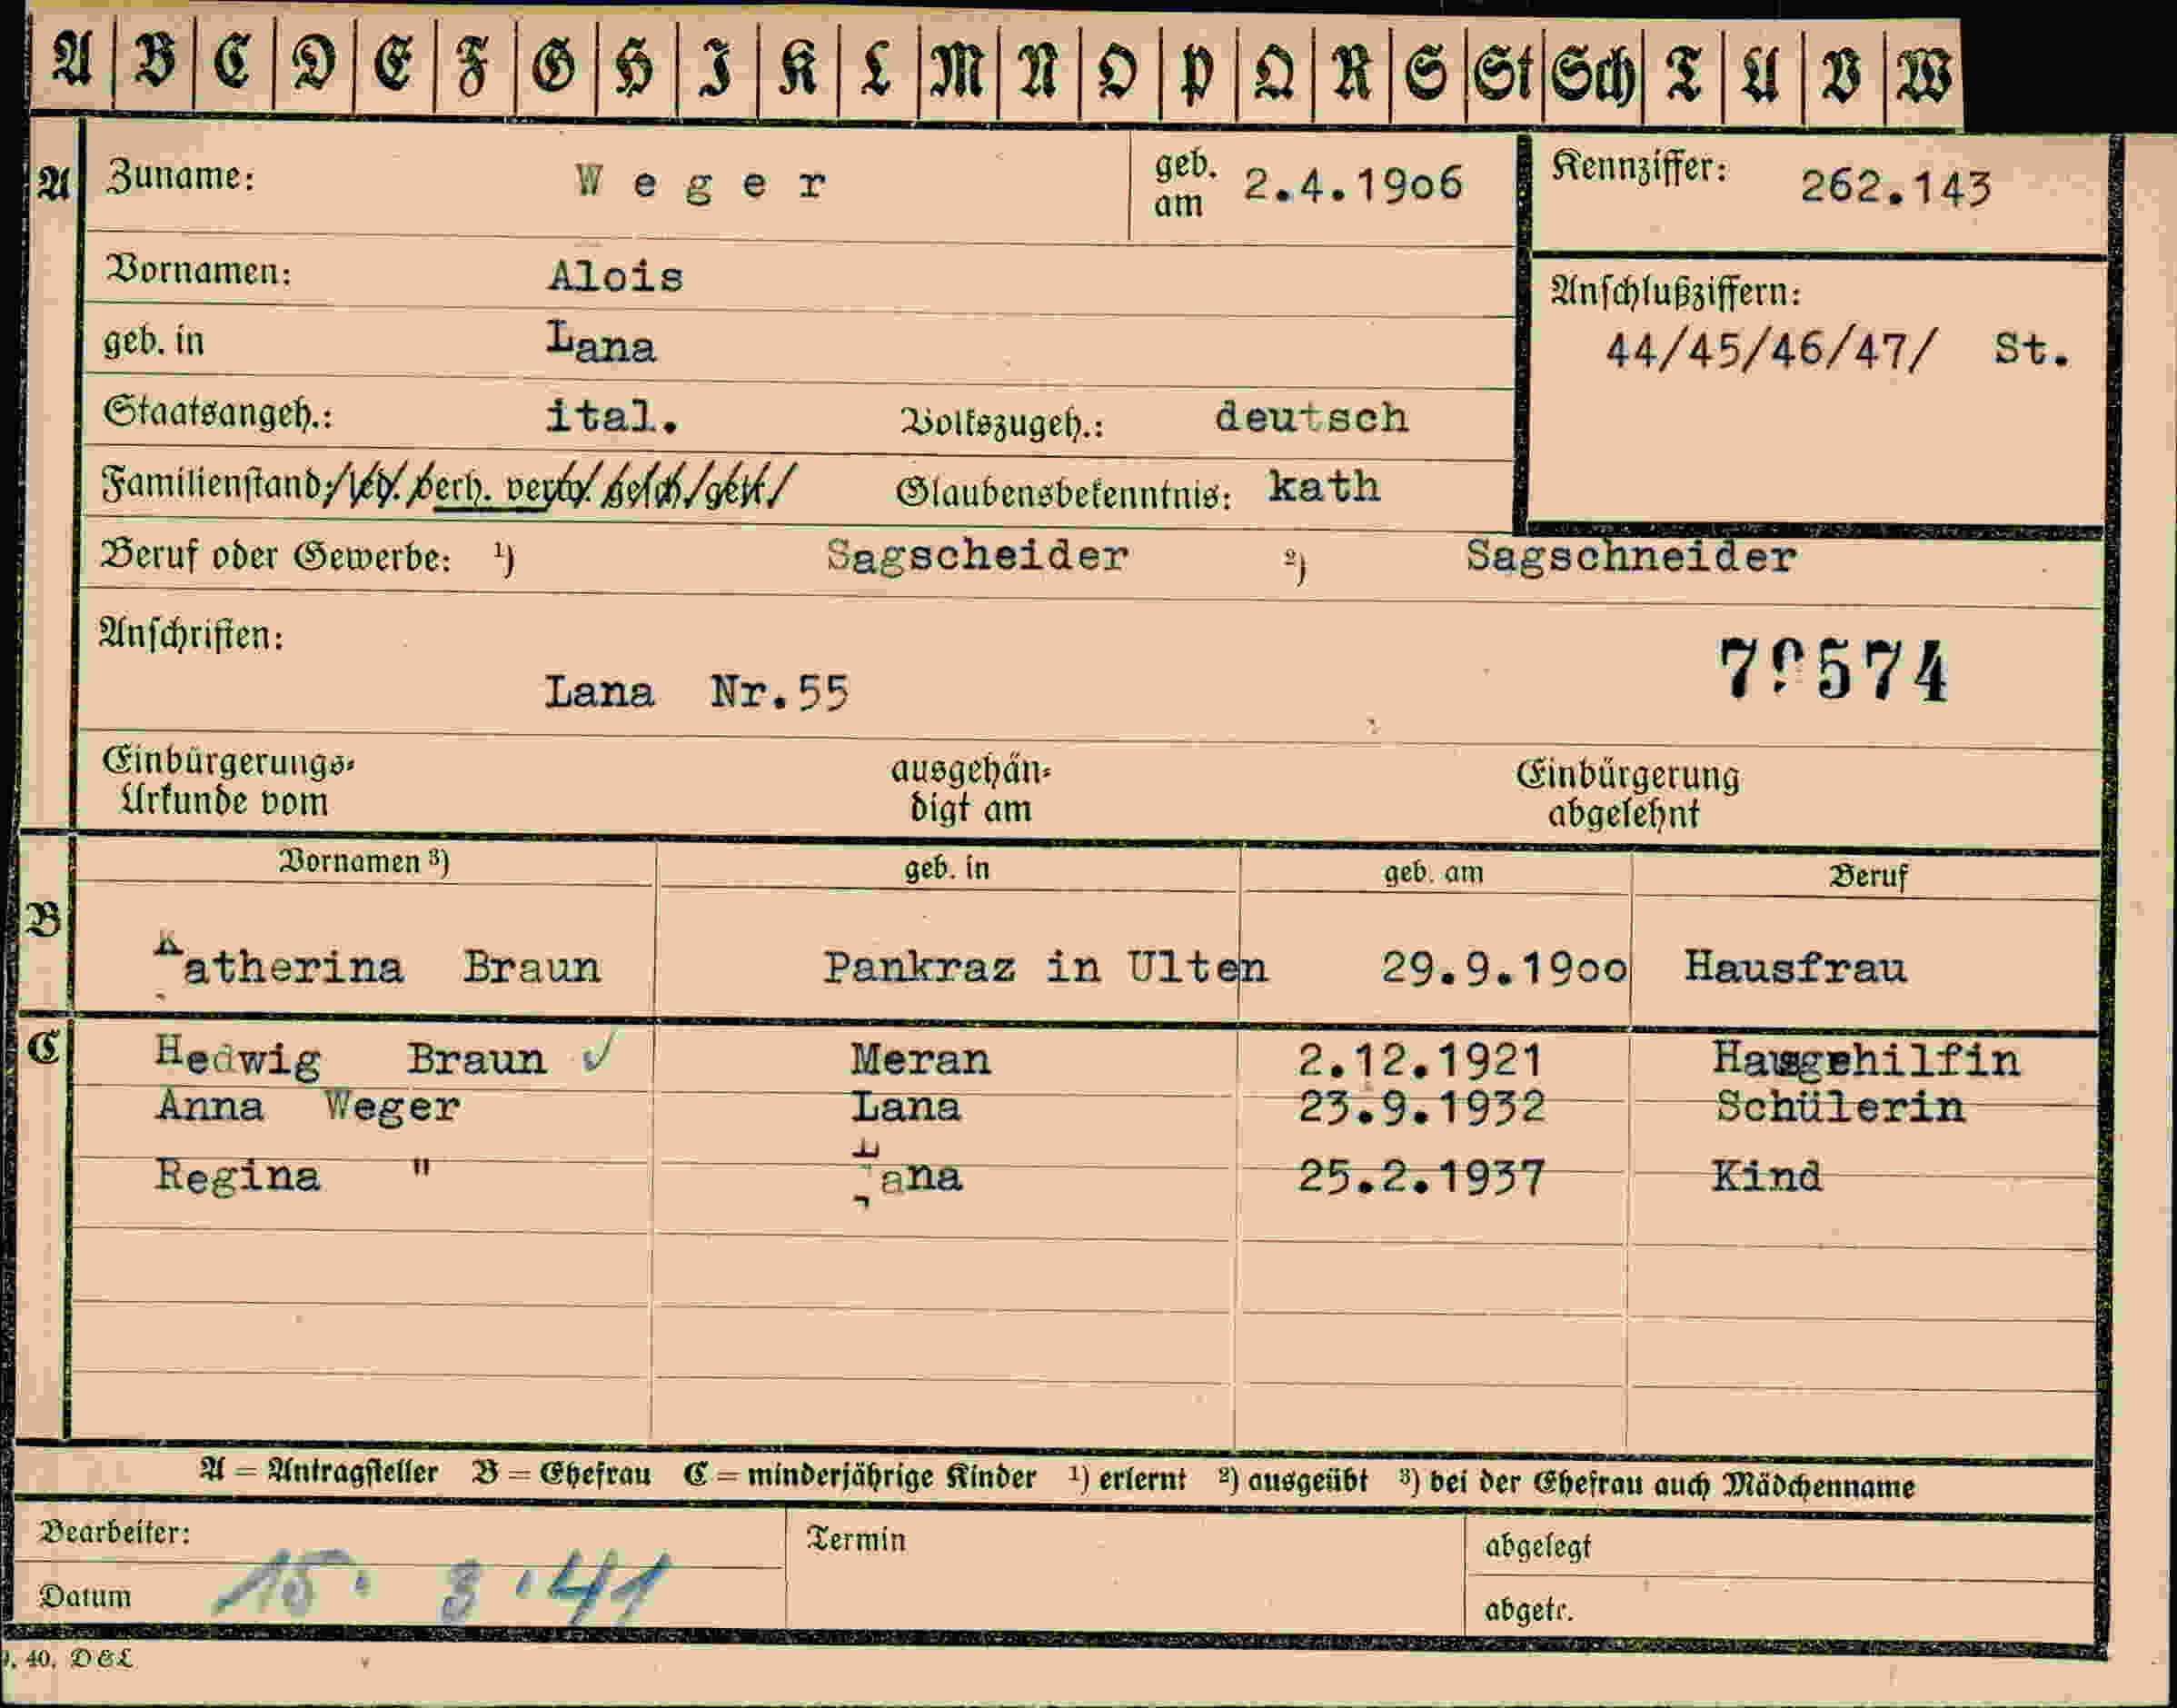 A B C D E F G H I K L M N O P Q R S St Sch T U V W
A Zuname: Weger geb. am 2.4.1906 Kennziffer: 262.143
Vornamen: Alois
Anschlußziffern:
geb. in Lana 44/45/46/47/ St.
Staatsangeh.: ital. Volkszugeh.: deutsch
Familienstand: led. verh. verw. gesch. getr. Glaubensbekenntnis: kath
Beruf oder Gewerbe: 1) Sagscheider 2) Sagschneider
Anschriften:
Lana Nr.55 574
Einbürgerungs- ausgehän- Einbürgerung
Urkunde vom digt am abgelehnt
Vornamen 3) geb. in geb. am Beruf
B
Katherina Braun Pankraz in Ulten 29.9.1900 Hausfrau
C Hedwig Braun ✓ Meran 2.12.1921 Hausgehilfin
Anna Weger Lana 23.9.1932 Schülerin
Regina " Lana 25.2.1937 Kind
A = Antragsteller B = Ehefrau C = minderjährige Kinder 1) erlernt 2) ausgeübt 3) bei der Ehefrau auch Mädchenname
Bearbeiter: Termin abgelegt
Datum 15. 3.41 abgetr.
40. D&L